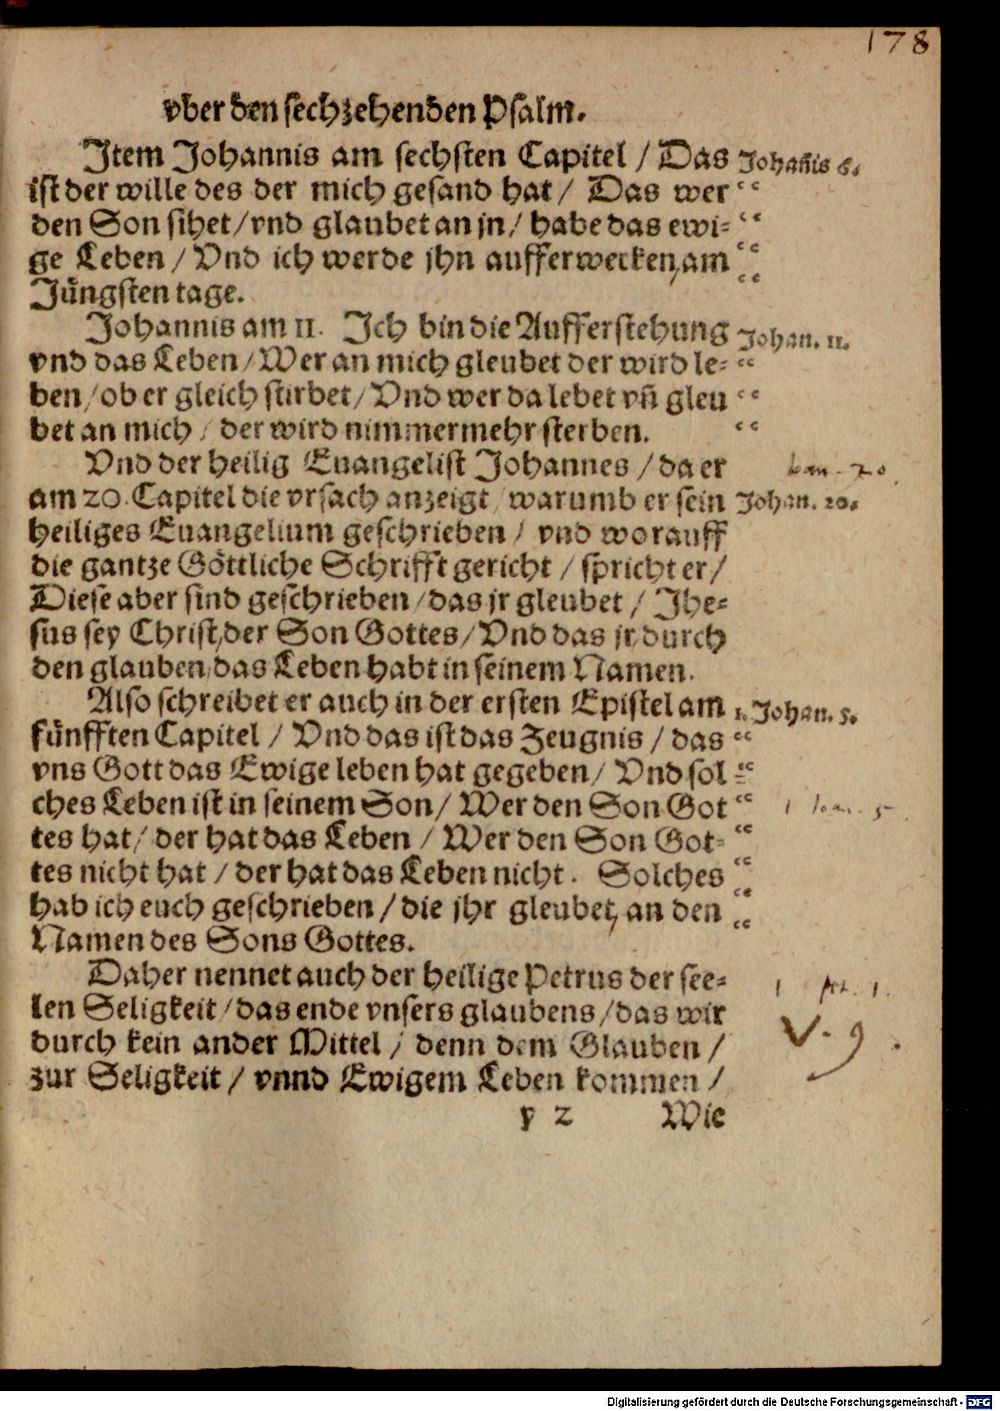 178
vber den sechzehenden Psalm.
Item Johannis am sechsten Capitel / Das
Johañis 6.
ist der wille des der mich gesand hat / Das wer
den Son sihet / vnd glaubet an jn / habe das ewi⸗
ge Leben / Vnd ich werde jhn aufferwecken, am
Jüngsten tage.
Johannis am 11. Ich bin die Aufferstehung
Johan. 11.
vnd das Leben / Wer an mich gleubet der wird le⸗
ben / ob er gleich stirbet / Vnd wer da lebet vñ gleu
bet an mich / der wird nimmermehr sterben.
Vnd der heilig Euangelist Johannes / da er
am 20. Capitel die vrsach anzeigt / warumb er sein
Johan. 20.
heiliges Euangelium geschrieben / vnd worauff
die gantze Göttliche Schrifft gericht / spricht er /
Diese aber sind geschrieben / das jr gleubet / Jhe⸗
sus sey Christ / der Son Gottes / Vnd das jr durch
den glauben / das Leben habt in seinem Namen.
Also schreibet er auch in der ersten Epistel am
1. Johan. 5.
fünfften Capitel / Vnd das ist das Zeugnis / das
vns Gott das Ewige leben hat gegeben / Vnd sol⸗
ches Leben ist in seinem Son / Wer den Son Got
tes hat / der hat das Leben / Wer den Son Got⸗
tes nicht hat / der hat das Leben nicht. Solches
hab ich euch geschrieben / die jhr gleubet, an den
Namen des Sons Gottes.
Daher nennet auch der heilige Petrus der see⸗
len Seligkeit / das ende vnsers glaubens / das wir
1 Pet. 1.
V. 9.
durch kein ander Mittel / denn dem Glauben /
zur Seligkeit / vnnd Ewigem Leben kommen /
y 2 Wie
Digitalisierung gefördert durch die Deutsche Forschungsgemeinschaft - DFG